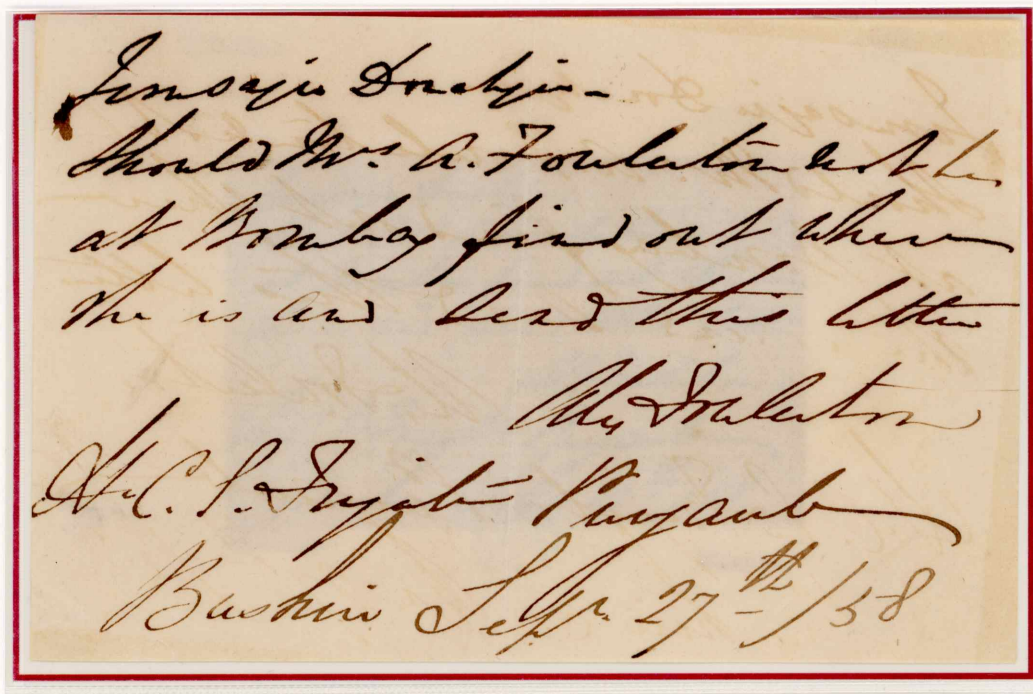 Jemsajee Dorabjee -
Should Mrs. A. Foulerton not be
at Bombay find out where
she is and send this letter
Alex Foulerton
H. C. S. Frigate Punjaub
Bushire Sept. 27th /58